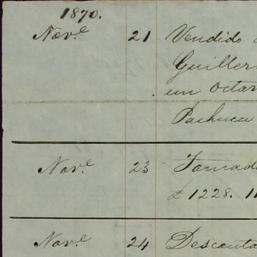 1870.
Nov.e 21 Vendido
Guiller
un octav
Pachuca
Nov.e 23 Tomad
£ 1228. 1
Nov.e 24 Descont